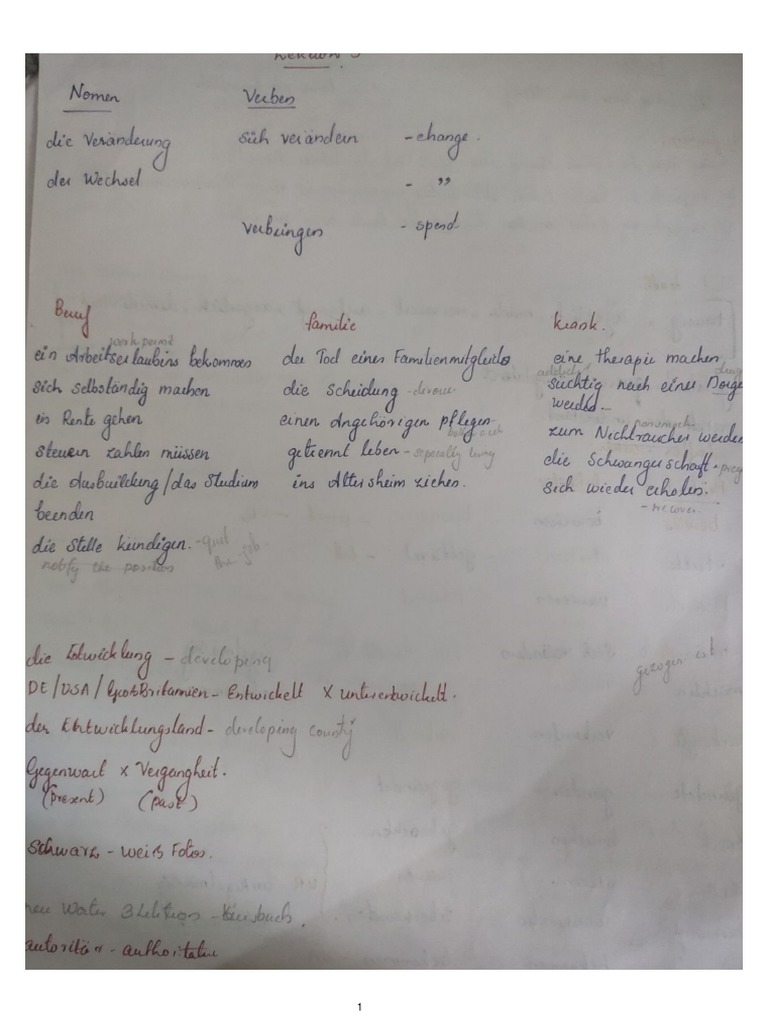 Lektion 3
Nomen Verben
die Veränderung sich verändern - change.
der Wechsel - "
verbringen - spend
Beruf familie krank.
work permit
ein Arbeitserlaubins bekommen der Tod eines Familienmitglieds eine therapie machen
sich selbständig machen die Scheidung - süchtig nach einer Doge
in Rente gehen einen Angehörigen pflegen. werden
steuern zahlen müssen getrennt leben - seperally living zum Nichtraucher werden
die Ausbuildung/das Studium ins Altersheim ziehen. die Schwangerschaft -
beenden sich wieder erholen.
- recover
die stelle kündigen. - quit the job
notify the position
die Entwicklung - developing
gezogen ist.
DE/USA/GrosBritannien - Entwickelt x unterentwickelt.
der Entwicklungsland - developing county
Gegenwart x Vergangheit.
(present) (past)
Schwarz - weiß Fotos.
autoritär - authoritative